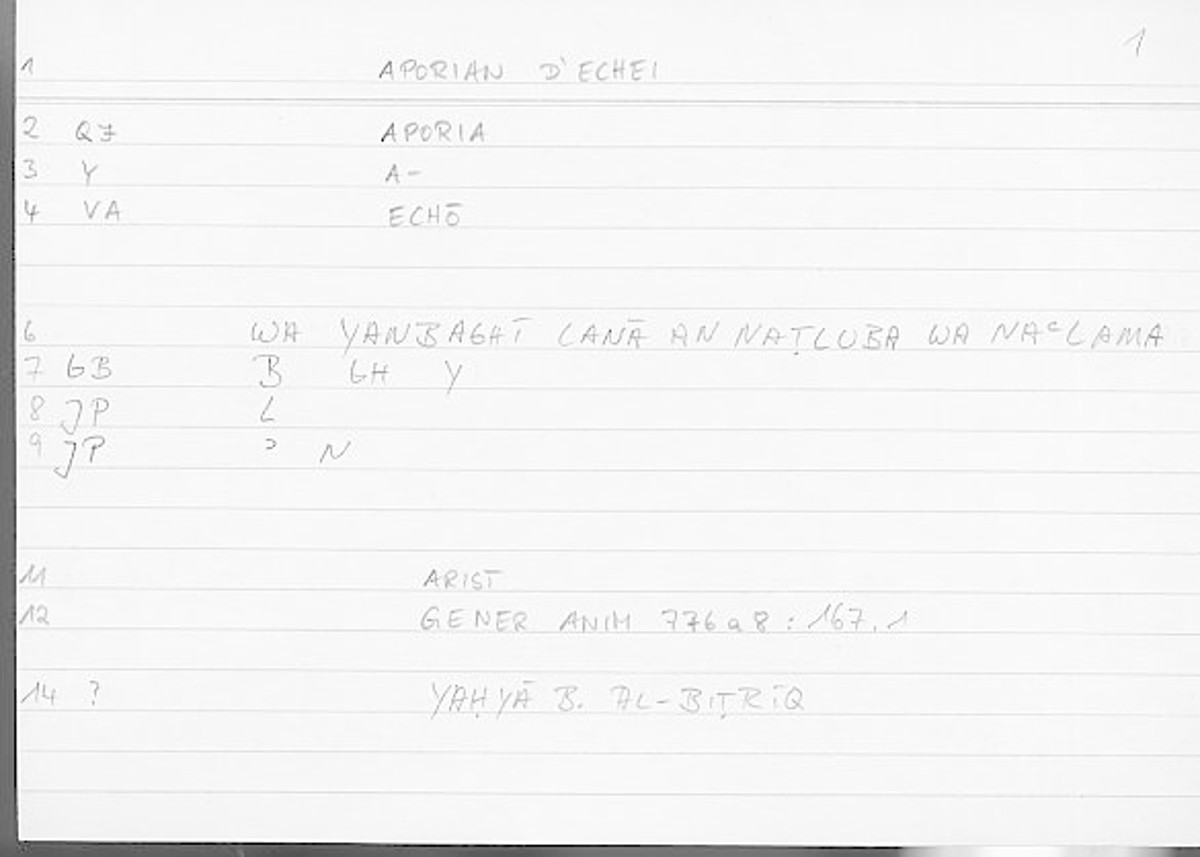 1
1 APORIAN D'ECHEI
2 QZ APORIA
3 Y A-
4 VA ECHŌ
6 WA YANBAGHĪ LANĀ AN NAṬLUBA WA NAᶜLAMA
7 GB B GH Y
8 JP L
9 JP ʾ N
11 ARIST
12 GENER ANIM 776a8 : 167.1
14 ? YAḤYĀ B. AL-BIṬRĪQ